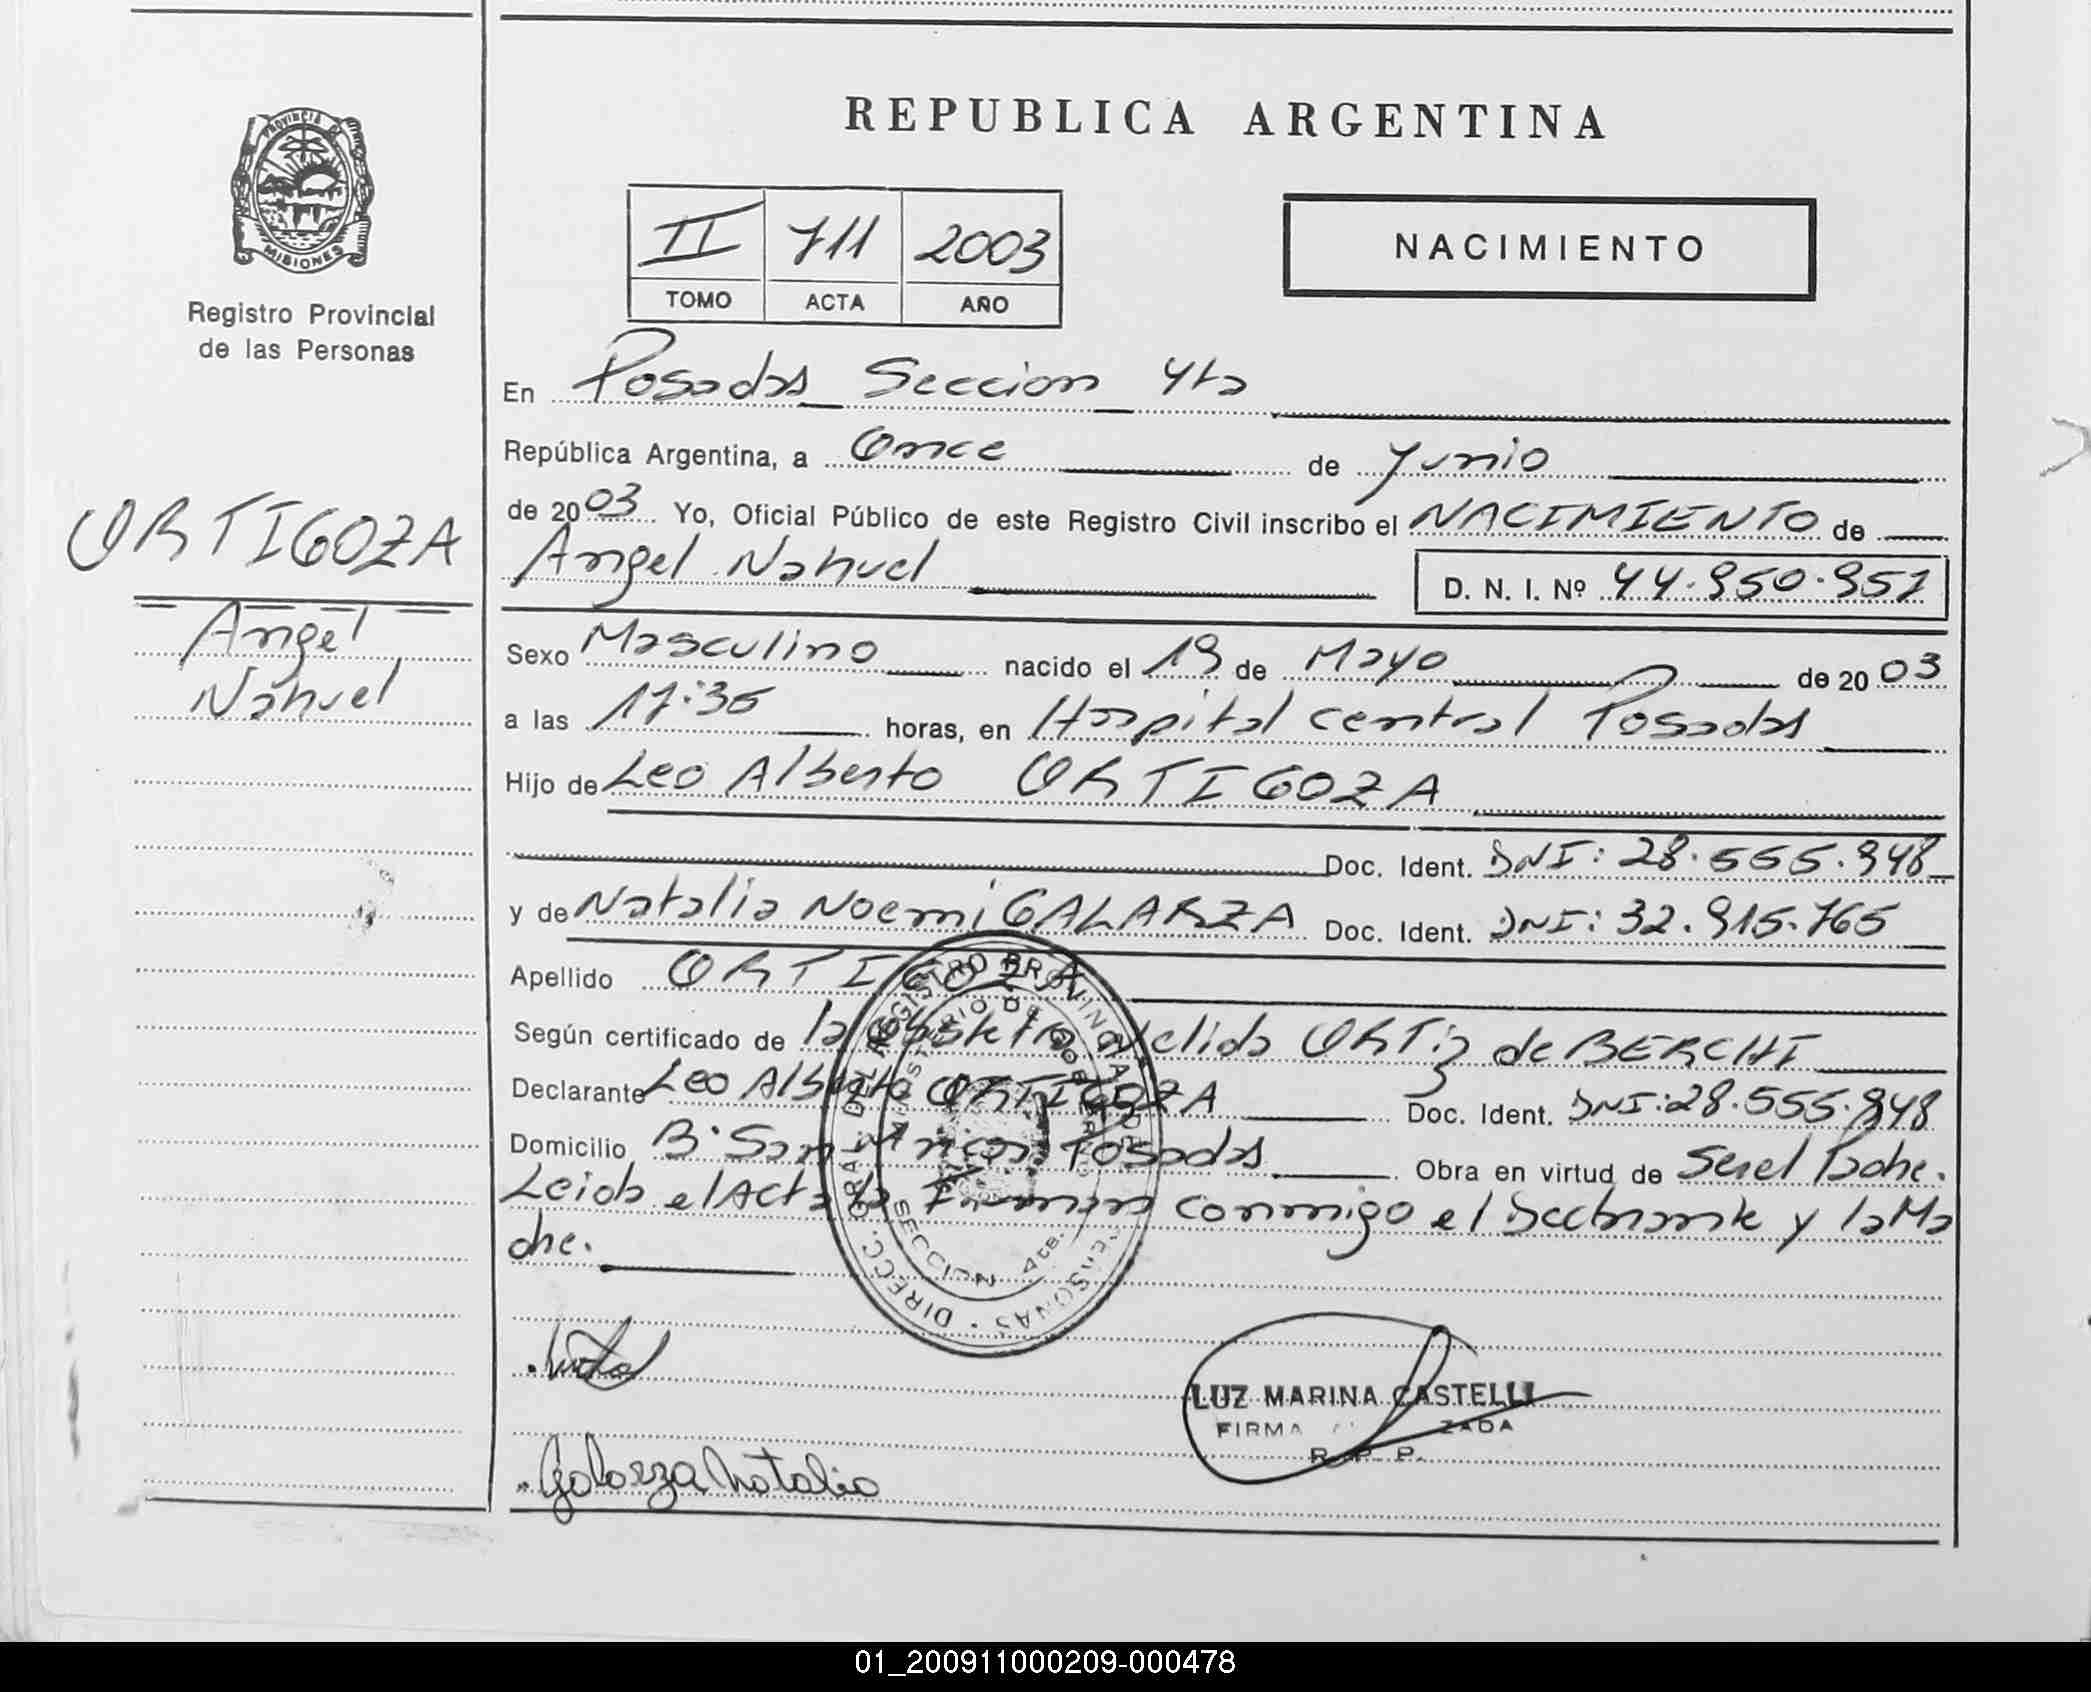 PROVINCIA DE
MISIONES
Registro Provincial
de las Personas
ORTIGOZA
Angel
Nahuel
REPUBLICA ARGENTINA
II 711 2003
TOMO ACTA AÑO
NACIMIENTO
En Posadas Seccion 4ta
República Argentina, a Once de Junio
de 2003 Yo, Oficial Público de este Registro Civil inscribo el NACIMIENTO de
Angel Nahuel D. N. I. Nº 44.950.951
Sexo Masculino nacido el 19 de Mayo de 2003
a las 17:36 horas, en Hospital central Posadas
Hijo de Leo Alberto ORTIGOZA
Doc. Ident. DNI: 28.555.948
y de Natalia Noemi GALARZA Doc. Ident. DNI: 32.915.765
Apellido ORTIGOZA
Según certificado de la Obstetra Nelida ORTiz de BERCHI
Declarante Leo Alberto ORTIGOZA Doc. Ident. DNI: 28.555.948
Domicilio B° San Marcos Posadas Obra en virtud de Ser el Padre.
Leida el Acta la Firman conmigo el Declarante y la Ma
dre.
DIRECC. GRAL. DEL REGISTRO PROVINCIAL DE LAS PERSONAS
MINISTERIO DE GOBIERNO
SECCION 4ta.
LUZ MARINA CASTELLI
FIRMA
R. P. P.
Galarza Natalia
01_200911000209-000478